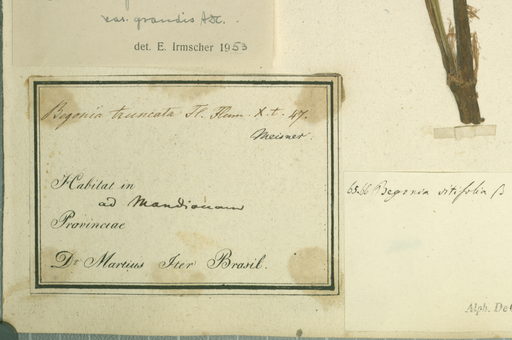 var. grandis A.DC.
det. E. Irmscher 1953
Begonia truncata Fl. Flum. X. t. 47.
Meisner.
Habitat in
ad Mandiocam
Provinciae
Dr Martius Iter Brasil.
Begonia vitifolia β
Alph. De